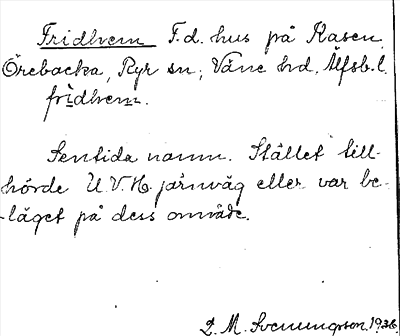 Fridhem F.d. hus på Kasen
Örebacka, Ryr sn, Väne hd. Älfsb.l.
frìdhem.
Sentida namn. Stället till-
hörde U.V.H. järnväg eller var be-
läget på dess område.
I. M. Svenungsson 1936.